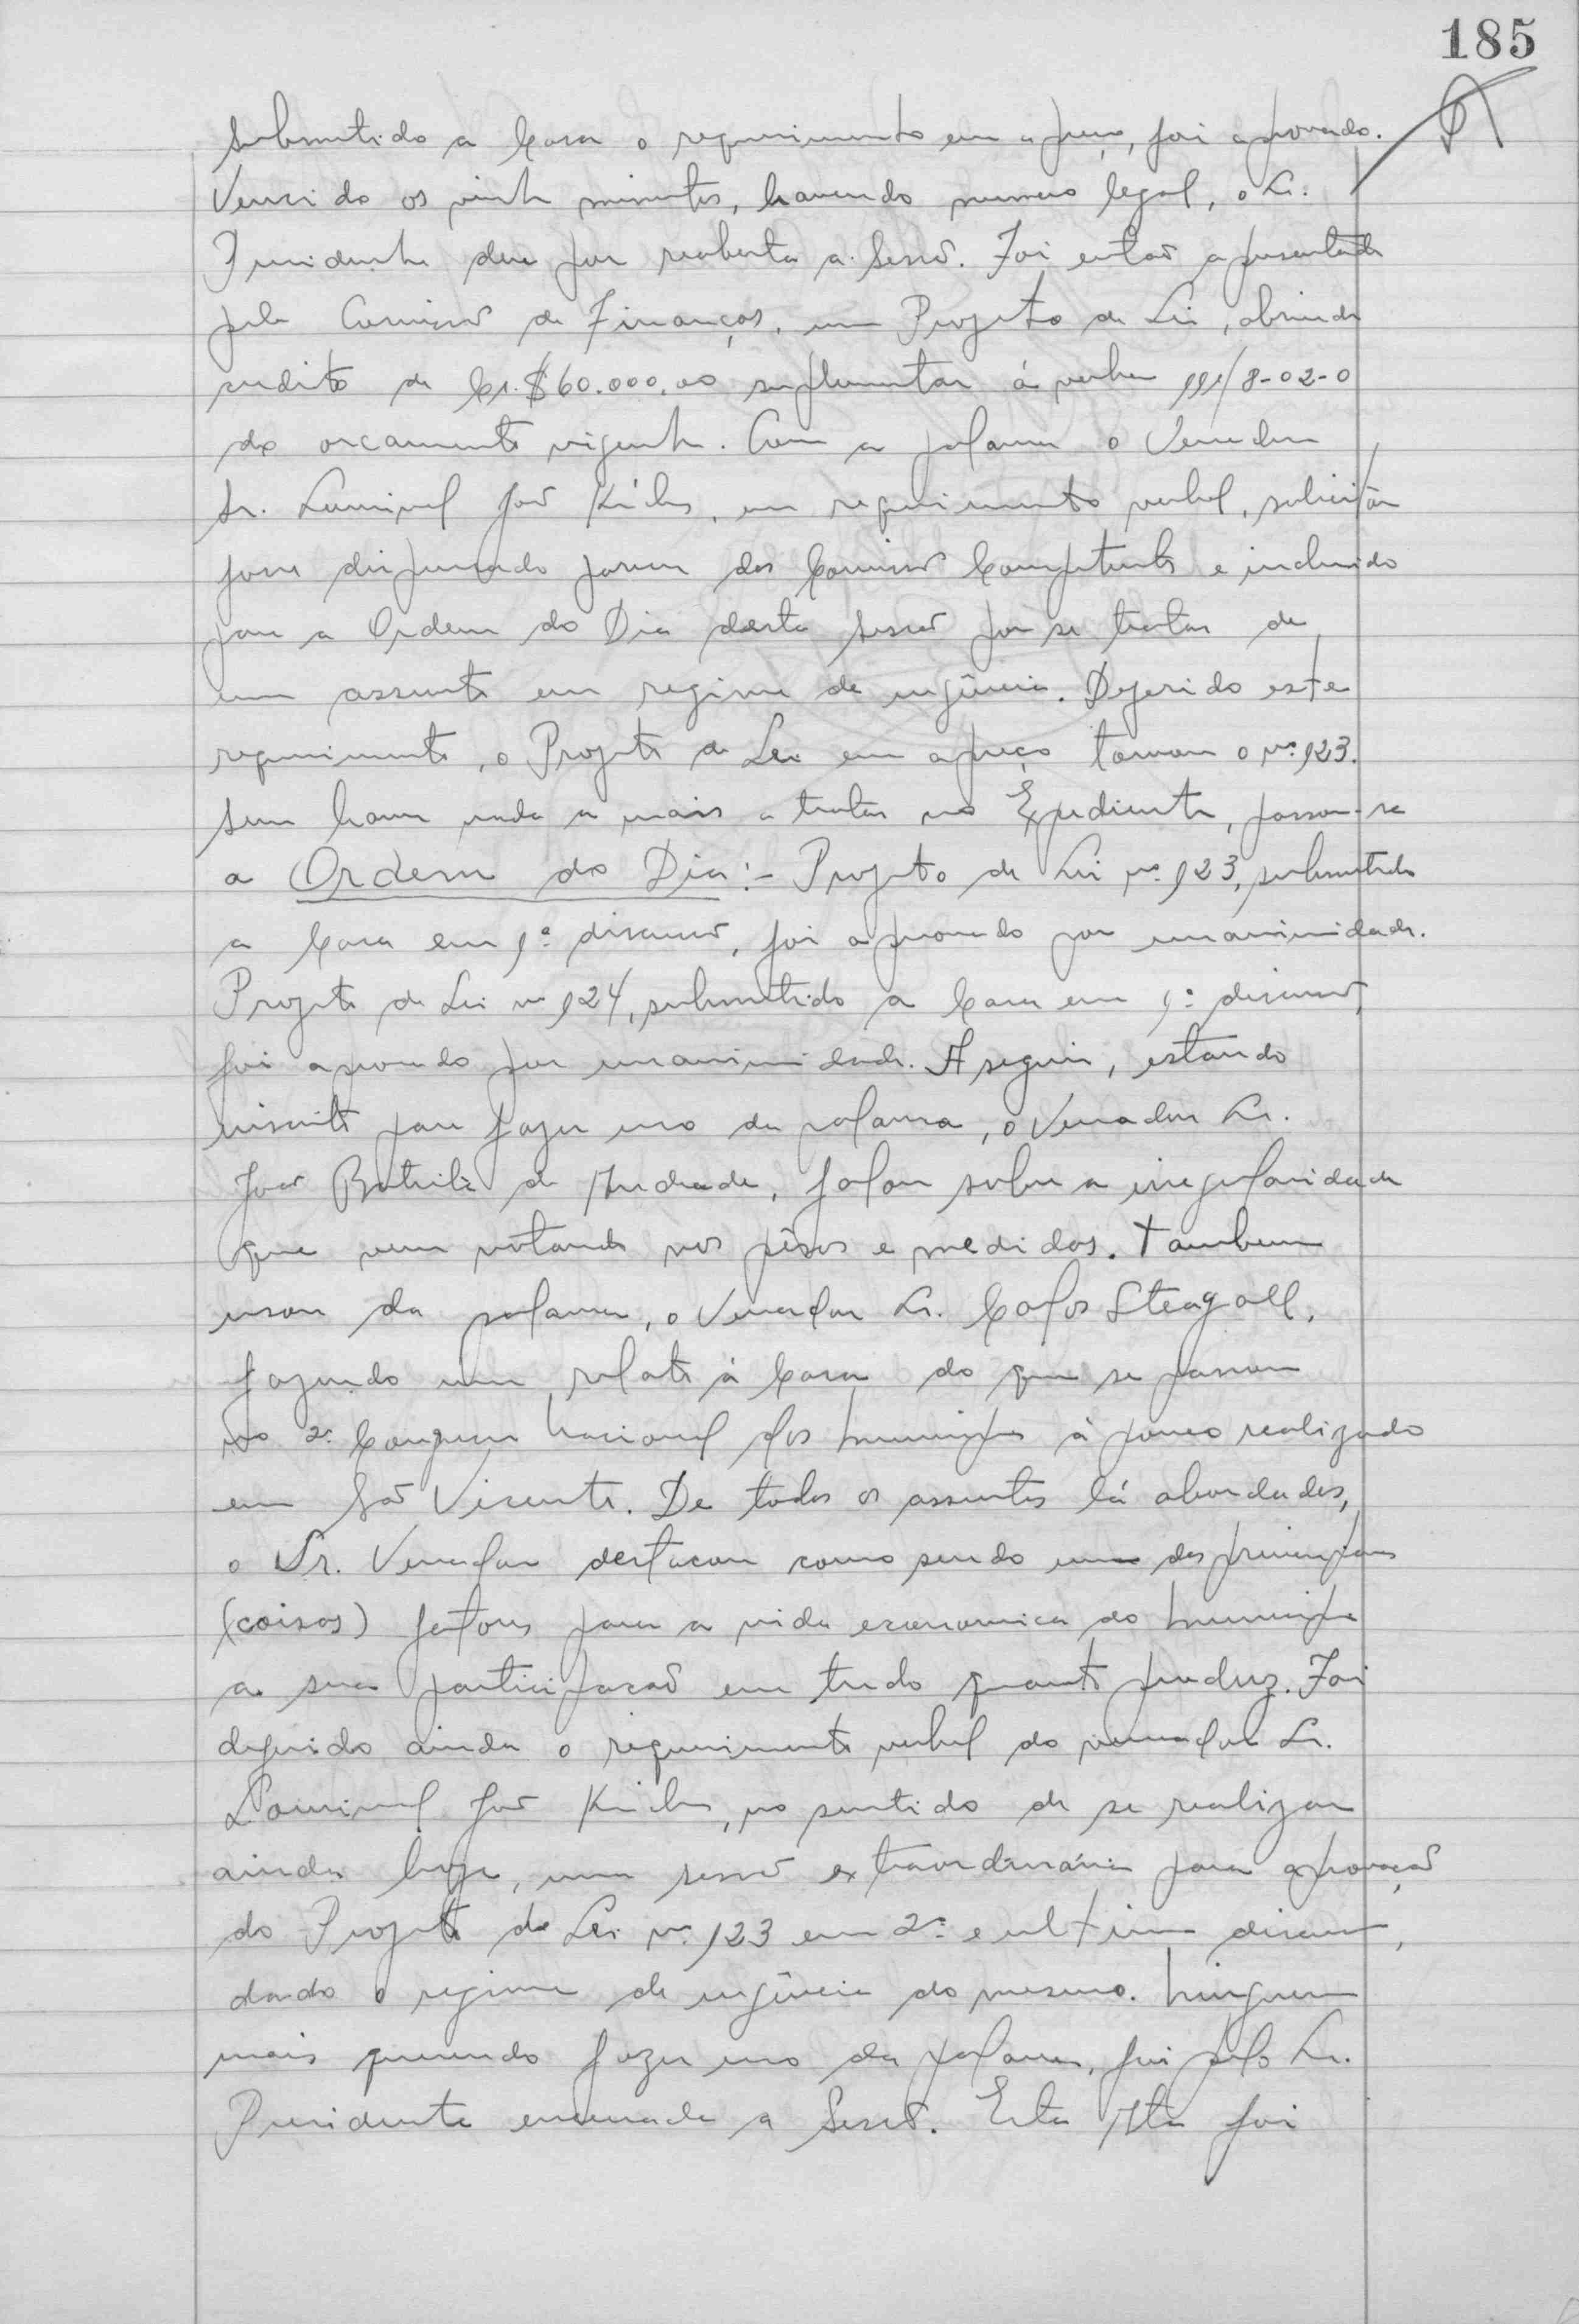 185
Submetido a Casa o requerimento em apreço, foi aprovado.
Vencido os vinte minutos, havendo numero legal, o Sr.
Presidente deu por reaberta a Sessão. Foi então apresentado
pela Comissão de Finanças, um Projeto de Lei, abrindo
credito de Cr.$60.000,00 suplementar á verba 111/8-02-0
do orçamento vigente. Com a palavra o Vereador
Sr. Lourival José, em requerimento verbal, solicitou
fosse dispensado parecer das Comissão Competente e incluido
para a Ordem do Dia desta sessão por se tratar de
um assunto em regime de urgência. Deferido este
requerimento, o Projeto de Lei em apreço tomou o nº 123.
Sem haver nada a mais a tratar no Expediente, passou-se
a Ordem do Dia:- Projeto de Lei nº 123, submetido
a Casa em 1ª discussão, foi aprovado por unanimidade.
Projeto de Lei nº 124, submetido a Casa em 1ª discussão,
foi aprovado por unanimidade. A seguir, estando
inscrito para fazer uso da palavra, o Vereador Sr.
João Batista de Andrade, falou sobre a irregularidade
que vem notando nos pêsos e medidas. Tambem
usou da palavra, o Vereador Sr. Carlos Steagall,
fazendo um relato á Casa do que se passou
no 2º Congresso Nacional dos Municipios á pouco realizado
em São Vicente. De todos os assuntos lá abordados,
o Sr. Vereador destacou como sendo um dos principais
(coisas) fatores para a vida economica do Municipio
a sua participação em tudo quanto produz. Foi
deferido ainda o requerimento verbal do vereador Sr.
Lourival José, no sentido de se realizar
ainda hoje, uma sessão extraordinária para aprovação
do Projeto de Lei nº 123 em 2ª e ultima discussão,
dado o regime de urgência do mesmo. Ninguem
mais querendo fazer uso da palavra, foi pelo Sr.
Presidente encerrada a Sessão. Esta Ata foi